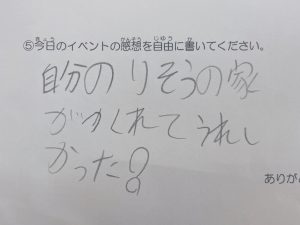 ⑤今日のイベントの感想を自由に書いてください。
自分のりそうの家
がつくれてうれし
かった!
ありが